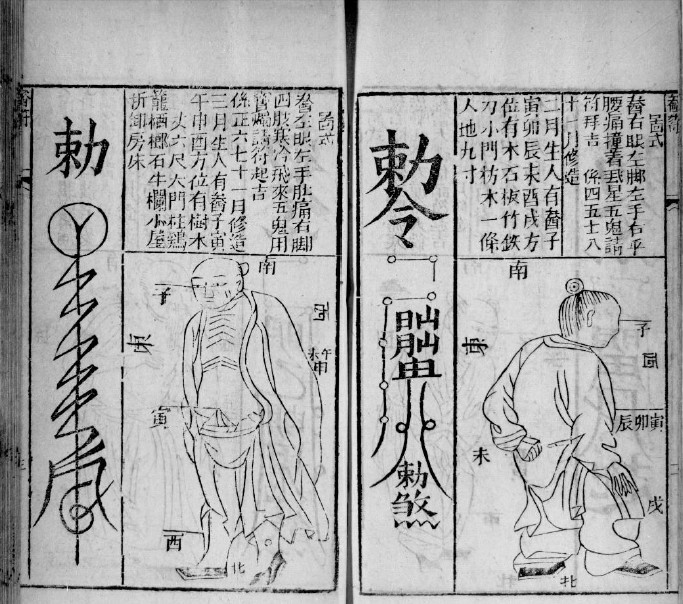 啚式
右眼左脚左手右平
腰痛撞着星五鬼請
符拜吉 係四五十八
十一月修造
二月生人有子
寅卯辰未酉戌方
位有木石板竹鉄
刃小門枋木一條
人地九寸
勅令
勅煞
南
子
西
東
寅卯辰
未
戌
北
啚式
左眼左手肚痛右脚
四肢寒冷飛來五鬼用
燭請符起吉
係正六七十一月修造
三月生人有子寅
午申酉方位有樹木
丈六尺大門柱鷄
籠栖榔石牛欄小屋
拆卸房床
勅
南
子
西
午未申
東
寅
酉
北